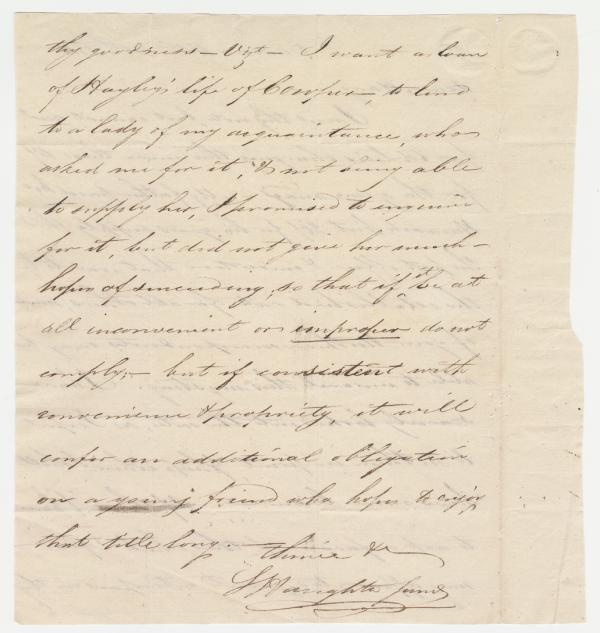 thy goodness – Vizt – I want a loan
of Hayley's life of Cowper, to lend
to a lady of my acquaintance, who
asked me for it, & not being able
to supply her, I promised to inquire
for it, but did not give her much
hopes of succeeding, so that if it be at
all inconvenient or improper do not
comply;– but if consistent with
convenience & propriety, it will
confer an additional obligation
on a young friend who hopes to enjoy
that title long – thine &c
S Haughton Junr